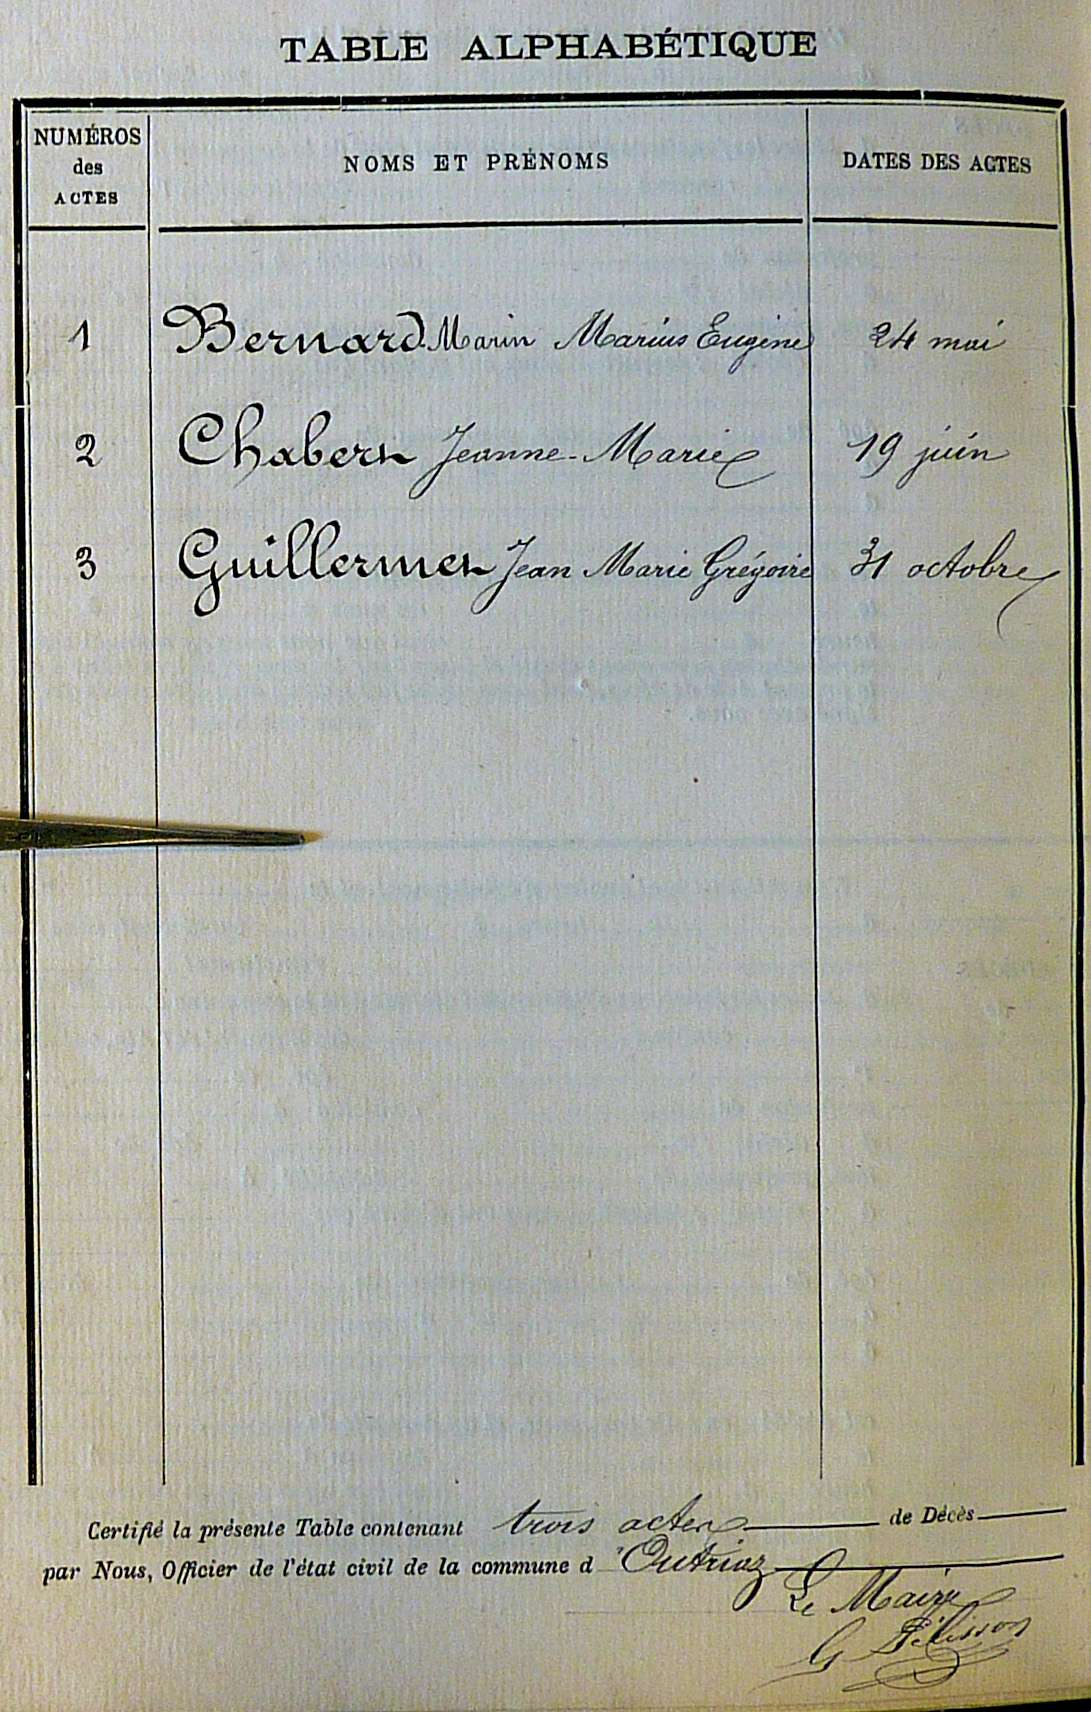 TABLE ALPHABÉTIQUE
NUMÉROS
des
ACTES
NOMS ET PRÉNOMS
DATES DES ACTES
1 Bernard Marin Marius Eugène 24 mai
2 Chabert Jeanne-Marie 19 juin
3 Guillermet Jean Marie Grégoire 31 octobre
Certifié la présente Table contenant trois actes de Décès
par Nous, Officier de l'état civil de la commune d'Outriaz
Le Maire
G Pélisson